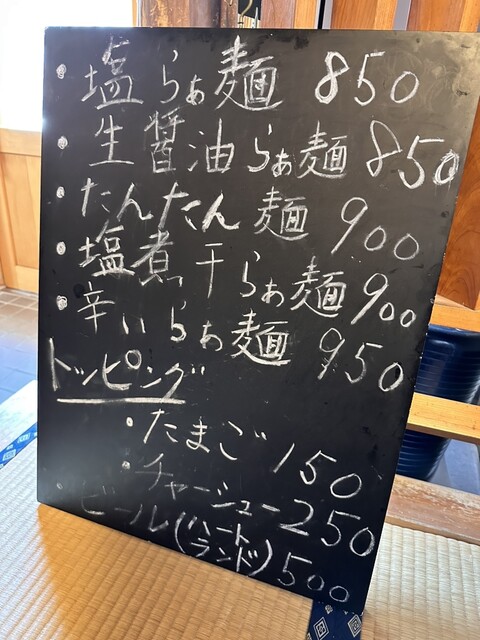 ・塩らぁ麺 850
・生醤油らぁ麺 850
・たんたん麺 900
・塩煮干らぁ麺 900
・辛いらぁ麺 950
トッピング
・たまご 150
・チャーシュー 250
・ビール(ハートランド) 500